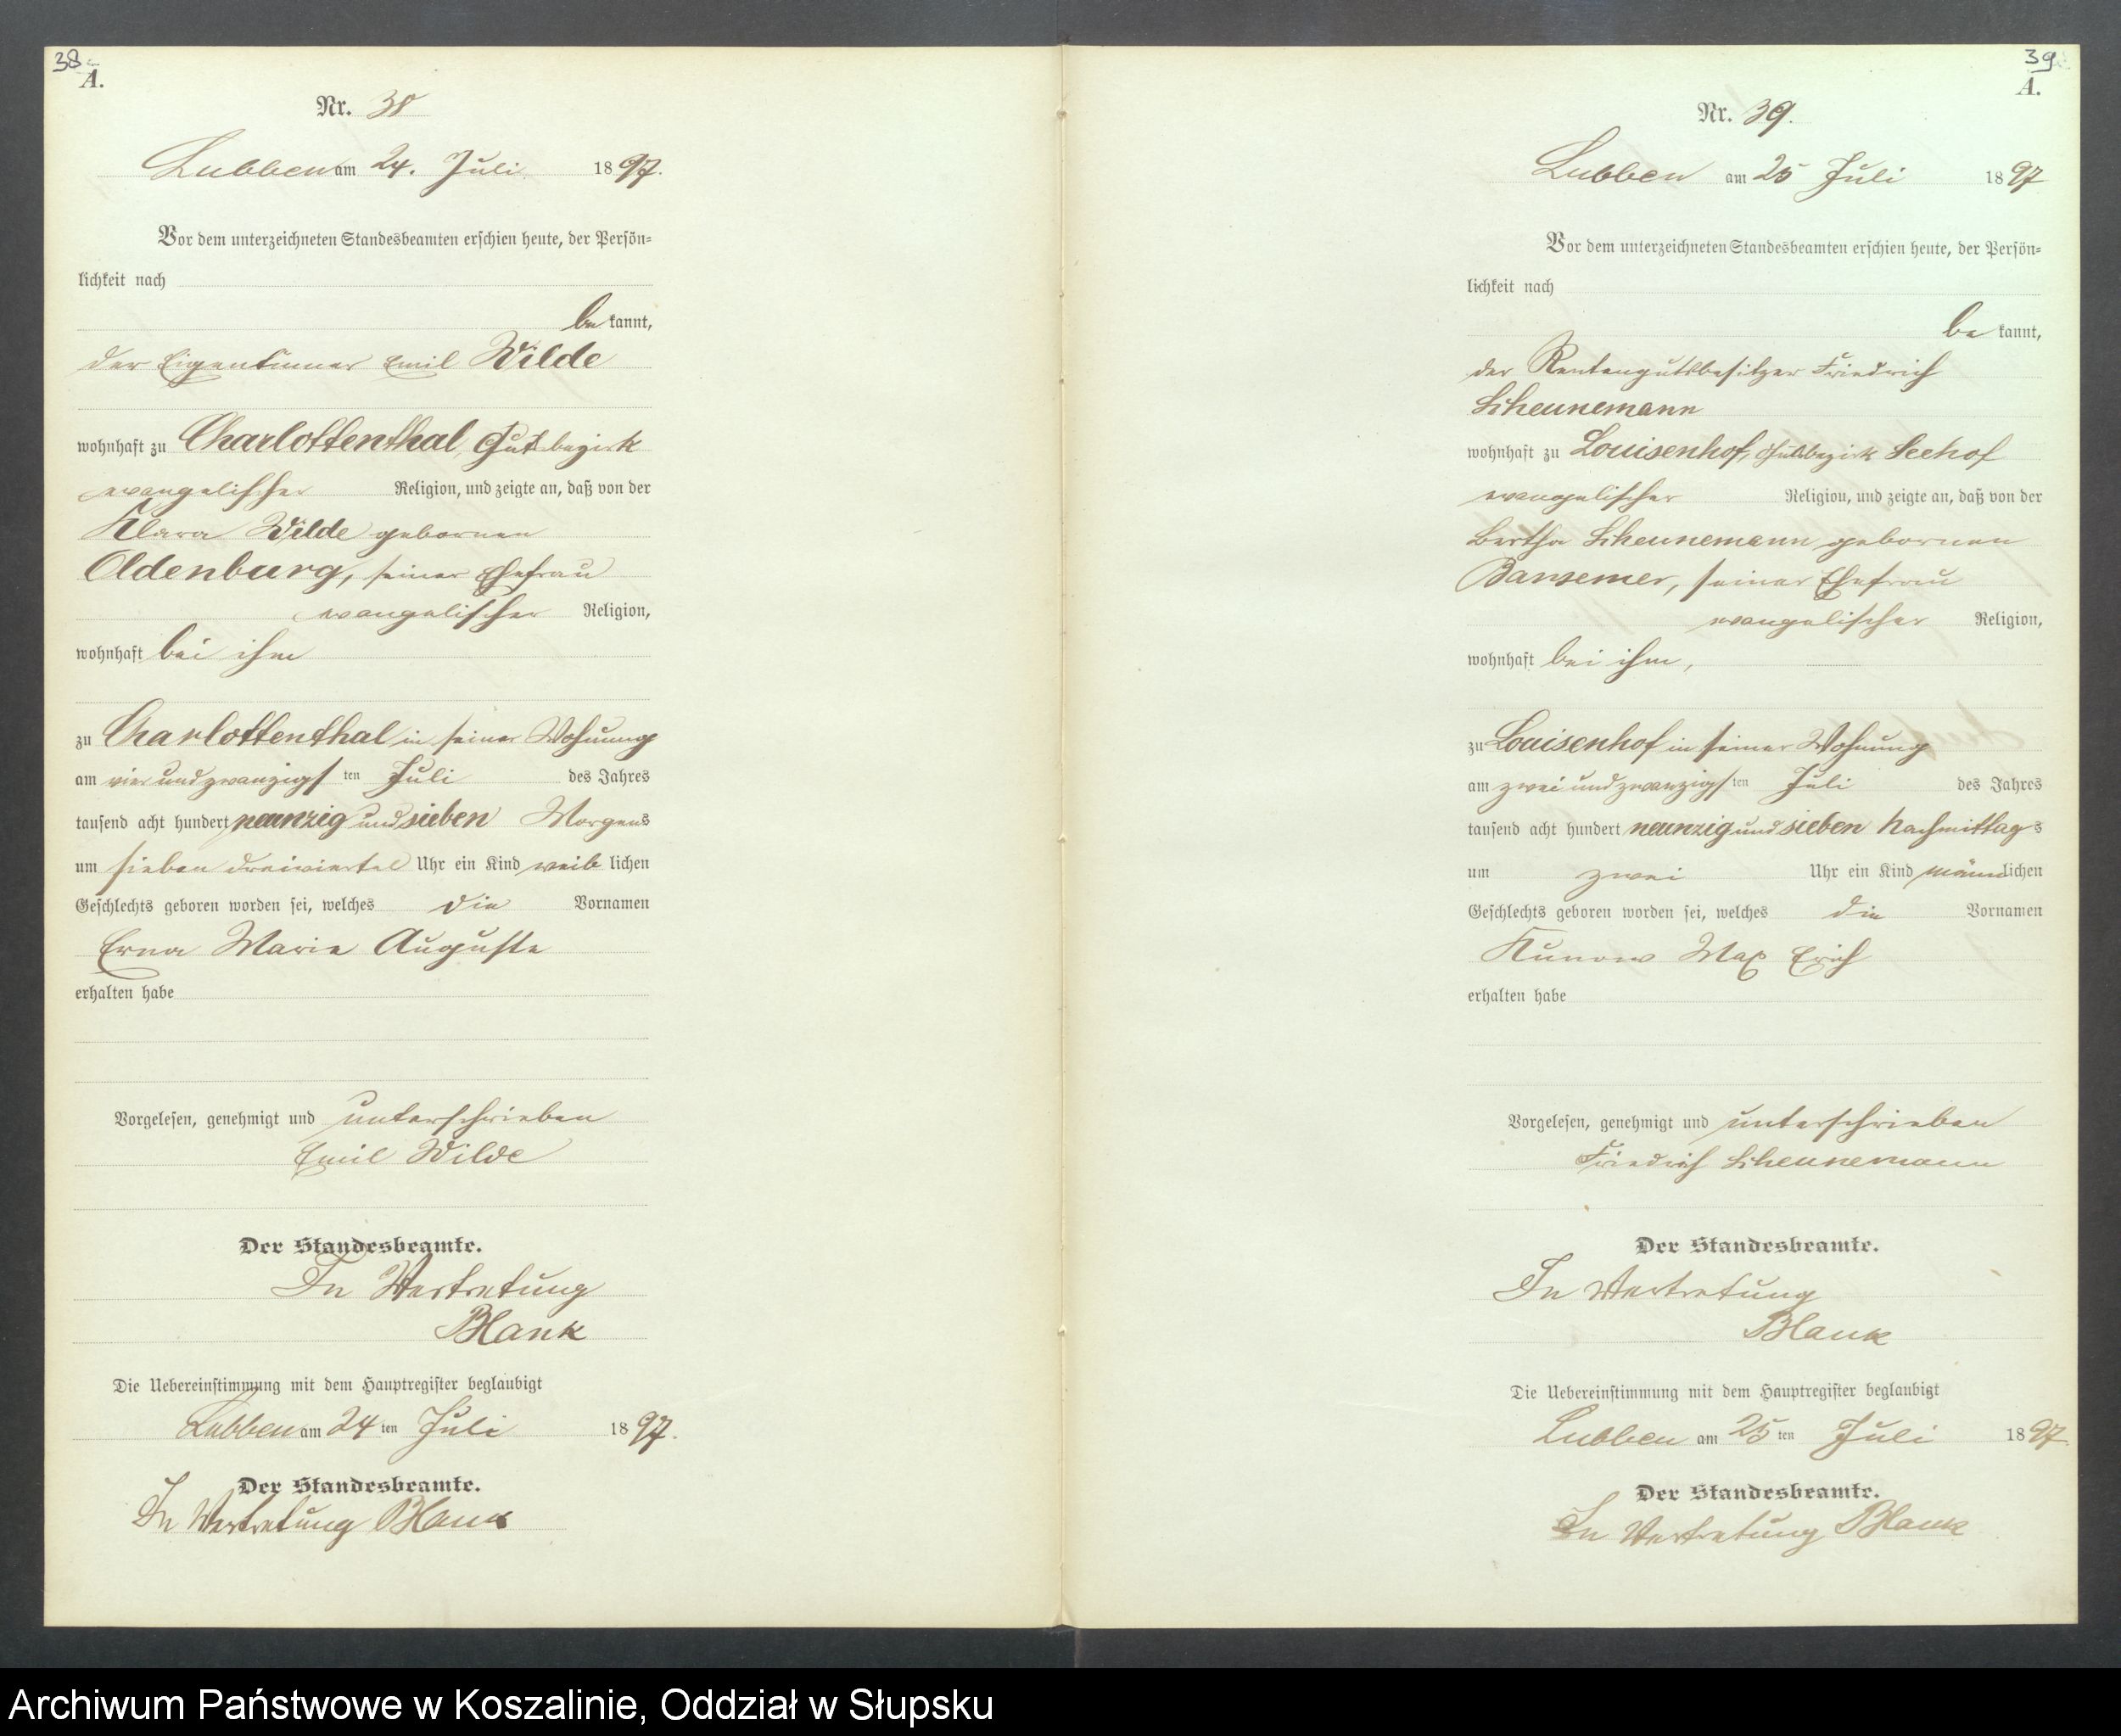 38
A.
Nr. 38
Lubben am 24. Juli 1897.
Vor dem unterzeichneten Standesbeamten erschien heute, der Persön=
lichkeit nach
be kannt,
der Eigentümer Emil Wilde
wohnhaft zu Charlottenthal, Gutsbezirk
evangelischer Religion, und zeigte an, daß von der
Klara Wilde gebornen
Oldenburg, seiner Ehefrau
evangelischer Religion,
wohnhaft bei ihm
zu Charlottenthal in seiner Wohnung
am vier und zwanzigsten Juli des Jahres
tausend acht hundert neunzig und sieben Morgens
um sieben dreiviertel Uhr ein Kind weiblichen
Geschlechts geboren worden sei, welches die Vornamen
Erna Marie Auguste
erhalten habe
Vorgelesen, genehmigt und unterschrieben
Emil Wilde
Der Standesbeamte.
In Vertretung
Blank
Die Uebereinstimmung mit dem Hauptregister beglaubigt
Lubben am 24 ten Juli 1897.
Der Standesbeamte.
In Vertretung Blank
39
A.
Nr. 39.
Lubben am 25 Juli 1897
Vor dem unterzeichneten Standesbeamten erschien heute, der Persön=
lichkeit nach
be kannt,
der Rentengutsbesitzer Friedrich
Scheunemann
wohnhaft zu Louisenhof, Gutsbezirk Seehof
evangelischer Religion, und zeigte an, daß von der
Bertha Scheunemann gebornen
Bansemer, seiner Ehefrau
evangelischer Religion,
wohnhaft bei ihm,
zu Louisenhof in seiner Wohnung
am zwei und zwanzigsten Juli des Jahres
tausend acht hundert neunzig und sieben Nachmittags
um zwei Uhr ein Kind männlichen
Geschlechts geboren worden sei, welches die Vornamen
Kunow Max Erich
erhalten habe
Vorgelesen, genehmigt und unterschrieben
Friedrich Scheunemann
Der Standesbeamte.
In Vertretung
Blank
Die Uebereinstimmung mit dem Hauptregister beglaubigt
Lubben am 25 ten Juli 1897
Der Standesbeamte.
In Vertretung Blank
Archiwum Państwowe w Koszalinie, Oddział w Słupsku